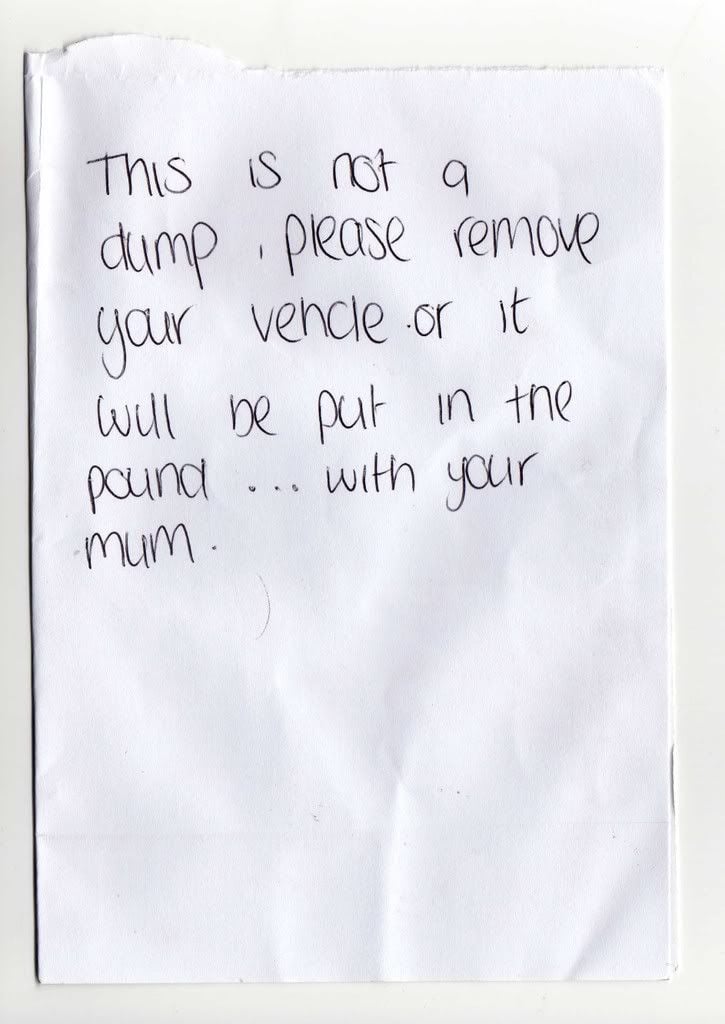 This is not a
dump, please remove
your vehcle or it
will be put in the
pound ... with your
mum.